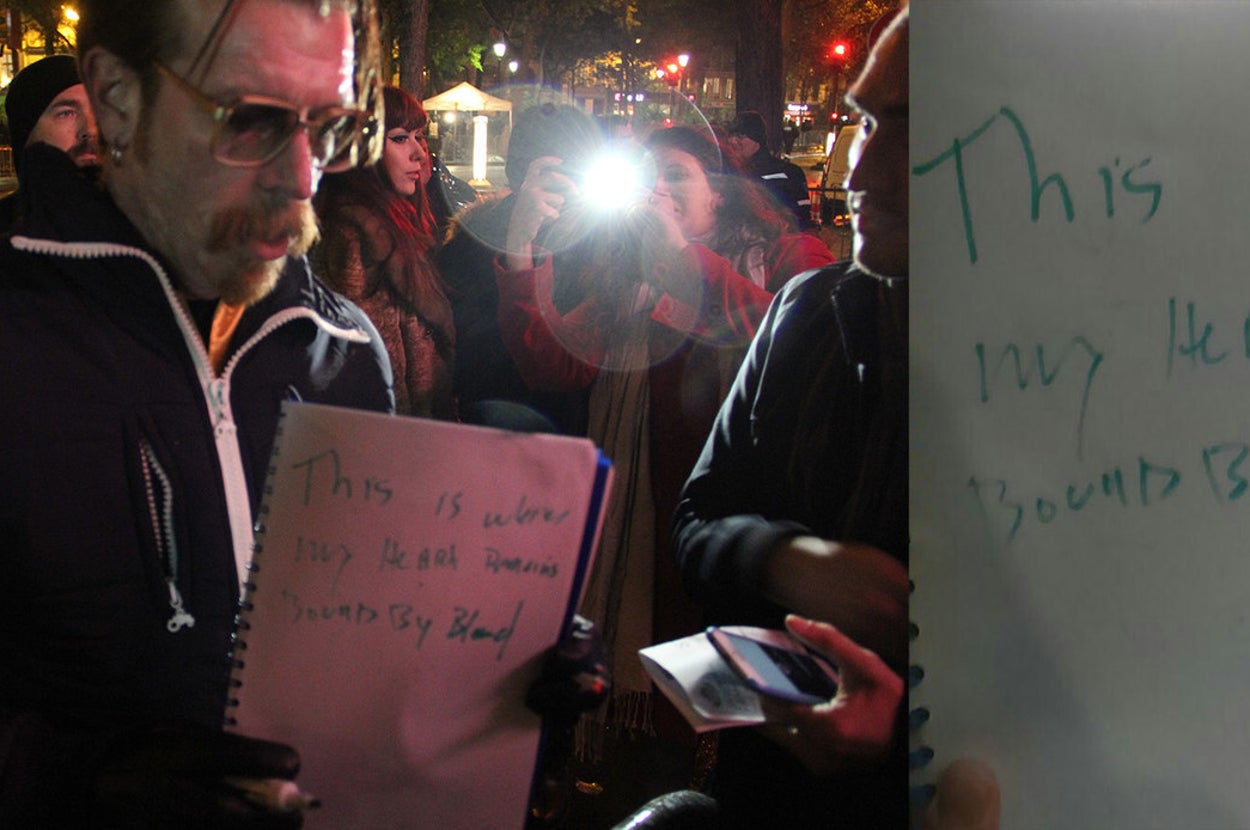 This is where
my HeARt Remains
Bound By Blood
This
my HeA
Bound B